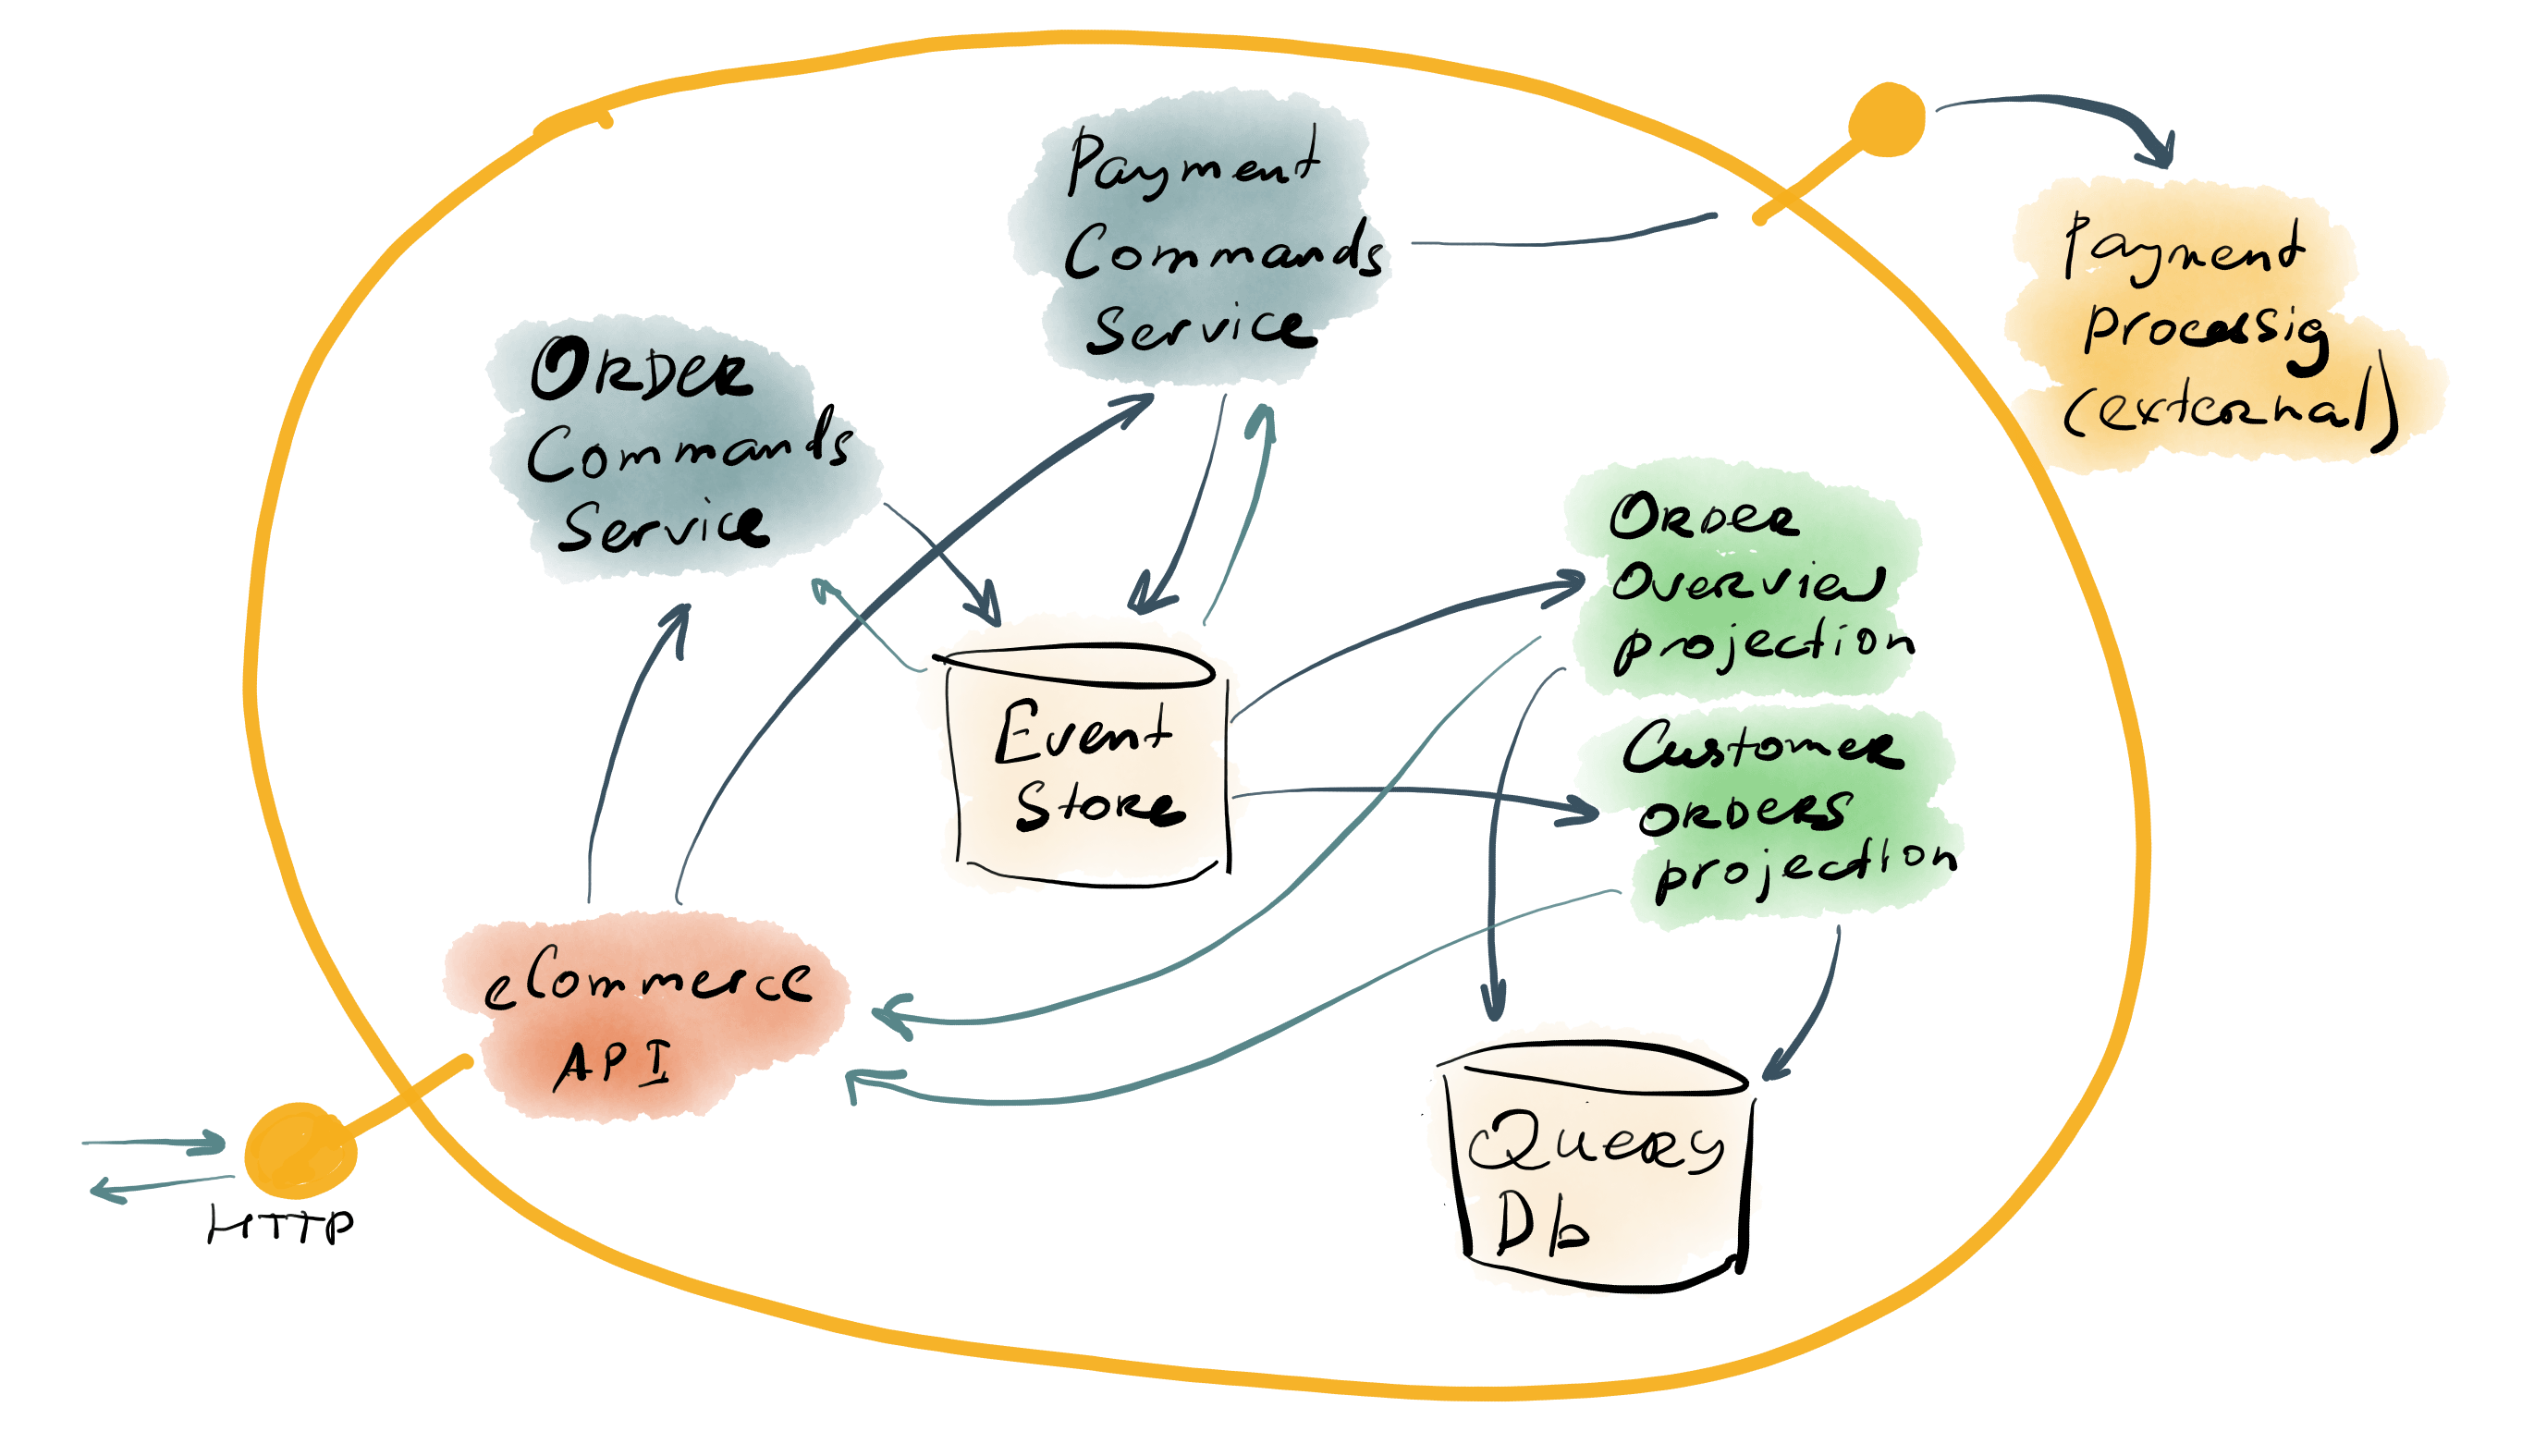 Payment
Commands
Service
Payment
Processig
(external)
ORDER
Commands
Service
Order
Overview
projection
Event
Store
Customer
orders
projection
eCommerce
API
Query
Db
HTTP